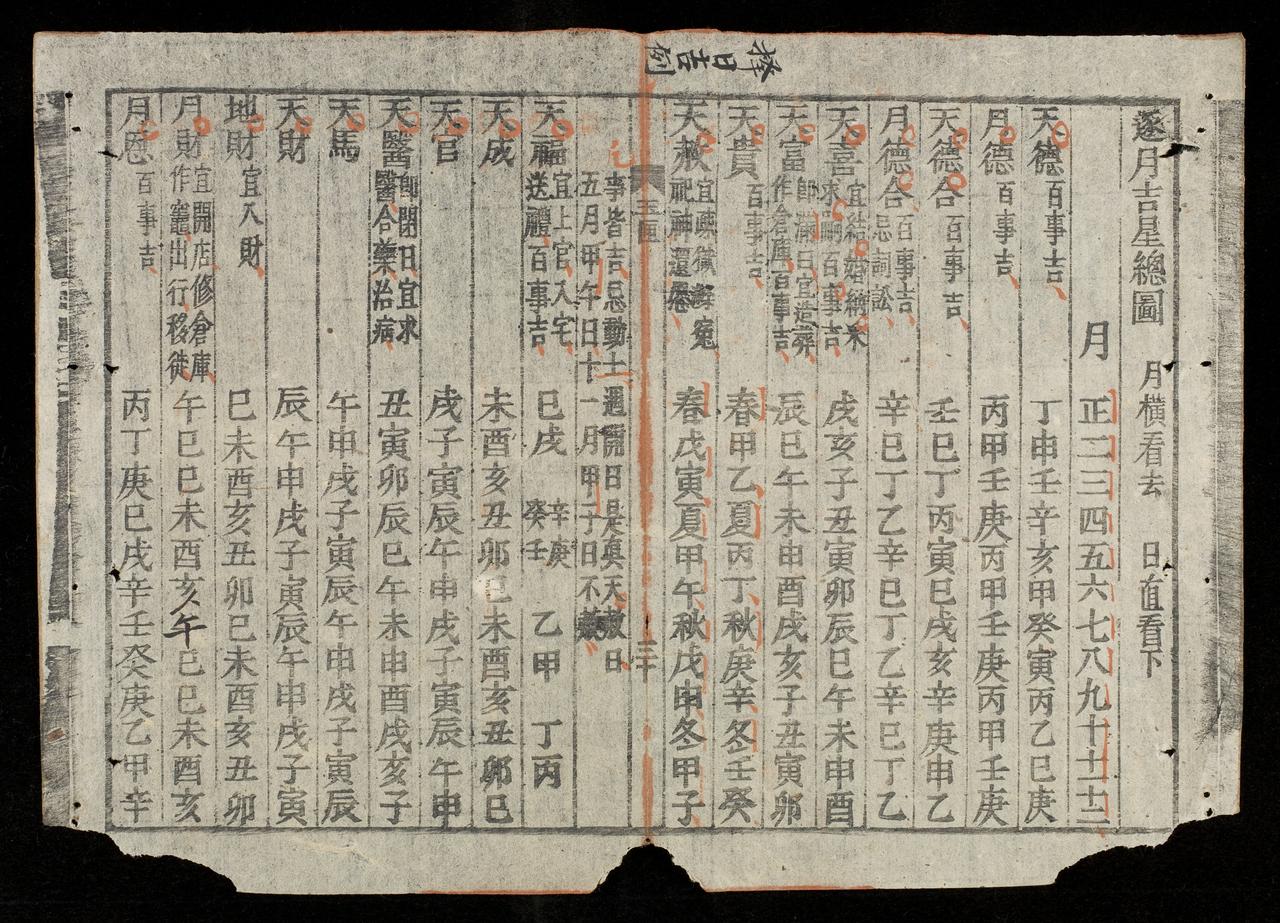 擇日吉例
逐月吉星總圖 月橫看去 日值看下
月 正二三四五六七八九十十一十二
天德 百事吉 丁申壬辛亥甲癸寅丙乙巳庚
月德 百事吉 丙甲壬庚丙甲壬庚丙甲壬庚
天德合 百事吉 壬巳丁丙寅巳戌亥辛庚申乙
月德合 百事吉忌詞訟 辛巳丁乙辛巳丁乙辛巳丁乙
天喜 宜結婚納采求嗣百事吉 戌亥子丑寅卯辰巳午未申酉
天富 即滿日宜造葬作倉庫百事吉 辰巳午未申酉戌亥子丑寅卯
天貴 百事吉 春甲乙夏丙丁秋庚辛冬壬癸
天赦 宜疎獄解冤祀神還愿 春戊寅夏甲午秋戊申冬甲子
玉匣 三十
事皆吉忌動土遇開日是真天赦日
五月甲午日十一月甲子日不
天福 宜上官入宅送禮百事吉 巳戌 辛庚癸壬 乙甲 丁丙
天成 未酉亥丑卯巳未酉亥丑卯巳
天官 戌子寅辰午申戌子寅辰午申
天醫 即閉日宜求醫合藥治病 丑寅卯辰巳午未申酉戌亥子
天馬 午申戌子寅辰午申戌子寅辰
天財 辰午申戌子寅辰午申戌子寅
地財 宜入財 巳未酉亥丑卯巳未酉亥丑卯
月財 宜開店修倉庫作竈出行移徙 午巳巳未酉亥午巳巳未酉亥
月恩 百事吉 丙丁庚巳戌辛壬癸庚乙甲辛